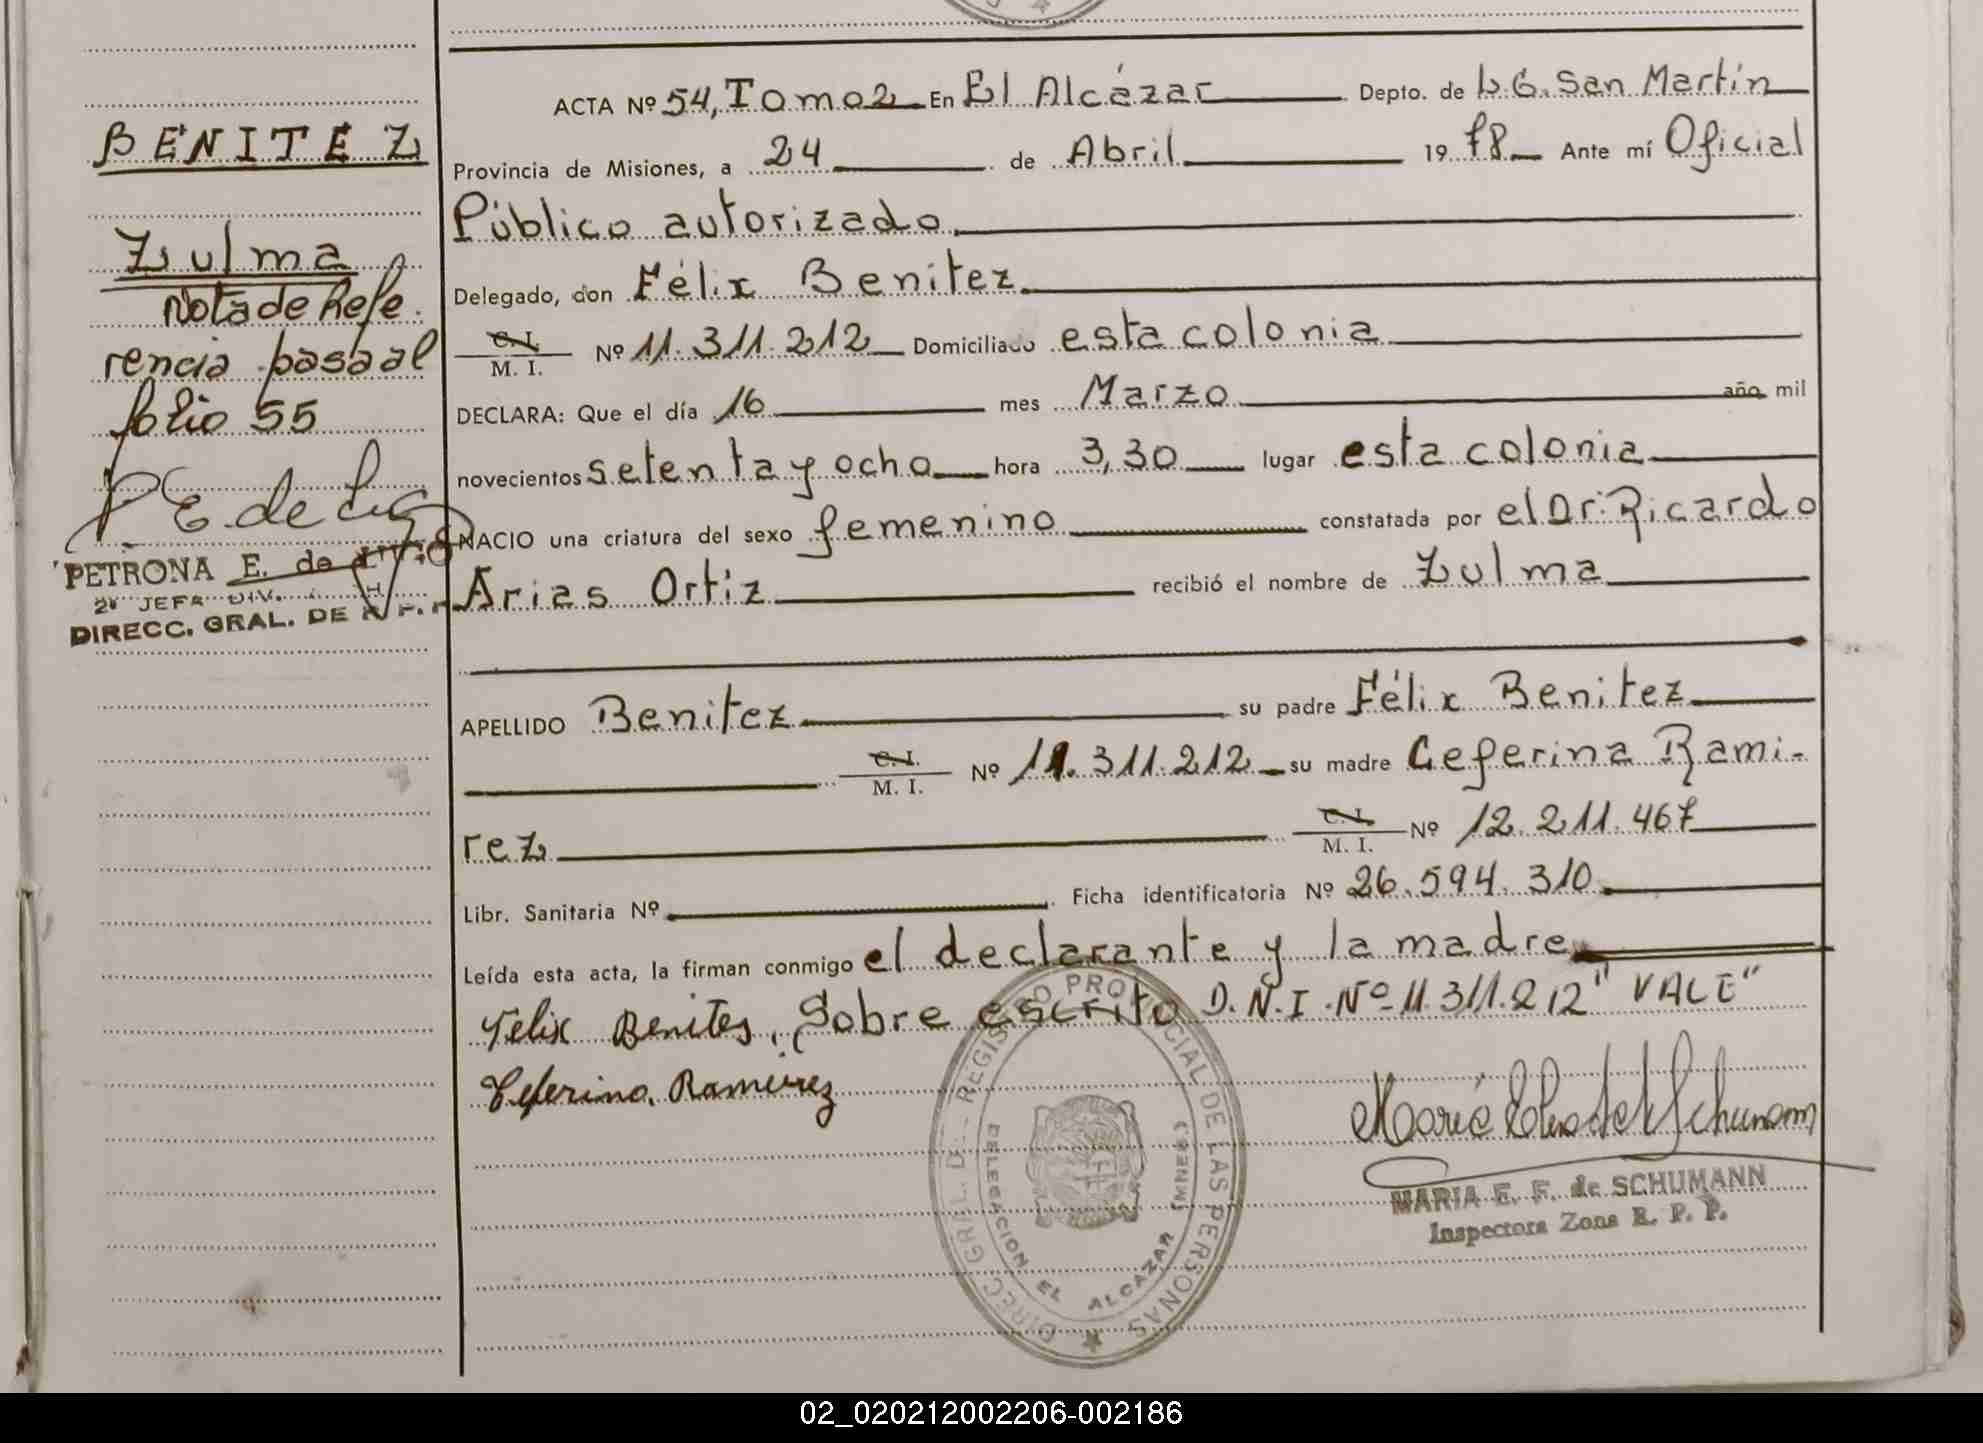 BENITEZ
Zulma
Nota de Refe.
rencia pasa al
folio 55
PETRONA E. de
2º JEFA DIV.
DIRECC. GRAL. DE R. P. P.
ACTA Nº 54, Tomo 2 En El Alcázar Depto. de L. G. San Martín
Provincia de Misiones, a 24 de Abril 19 78 Ante mí Oficial
Público autorizado
Delegado, don Félix Benitez
C. I. / M. I. Nº 11.311.212 Domiciliado esta colonia
DECLARA: Que el día 16 mes Marzo año mil
novecientos setenta y ocho hora 3,30 lugar esta colonia
NACIO una criatura del sexo femenino constatada por el Dr. Ricardo
Arias Ortiz recibió el nombre de Zulma
APELLIDO Benitez su padre Félix Benitez
C. I. / M. I. Nº 11.311.212 su madre Ceferina Rami-
rez C. I. / M. I. Nº 12.211.467
Libr. Sanitaria Nº Ficha identificatoria Nº 26.594.310
Leída esta acta, la firman conmigo el declarante y la madre
Felix Benites. Sobre escrito D.N.I. Nº 11.311.212 "VALE"
Ceferina Ramirez
DIREC. GRAL. D. REGISTRO PROVINCIAL DE LAS PERSONAS
DELEGACION EL ALCAZAR
MARIA E. F. de SCHUMANN
Inspectora Zona R. P. P.
02_020212002206-002186